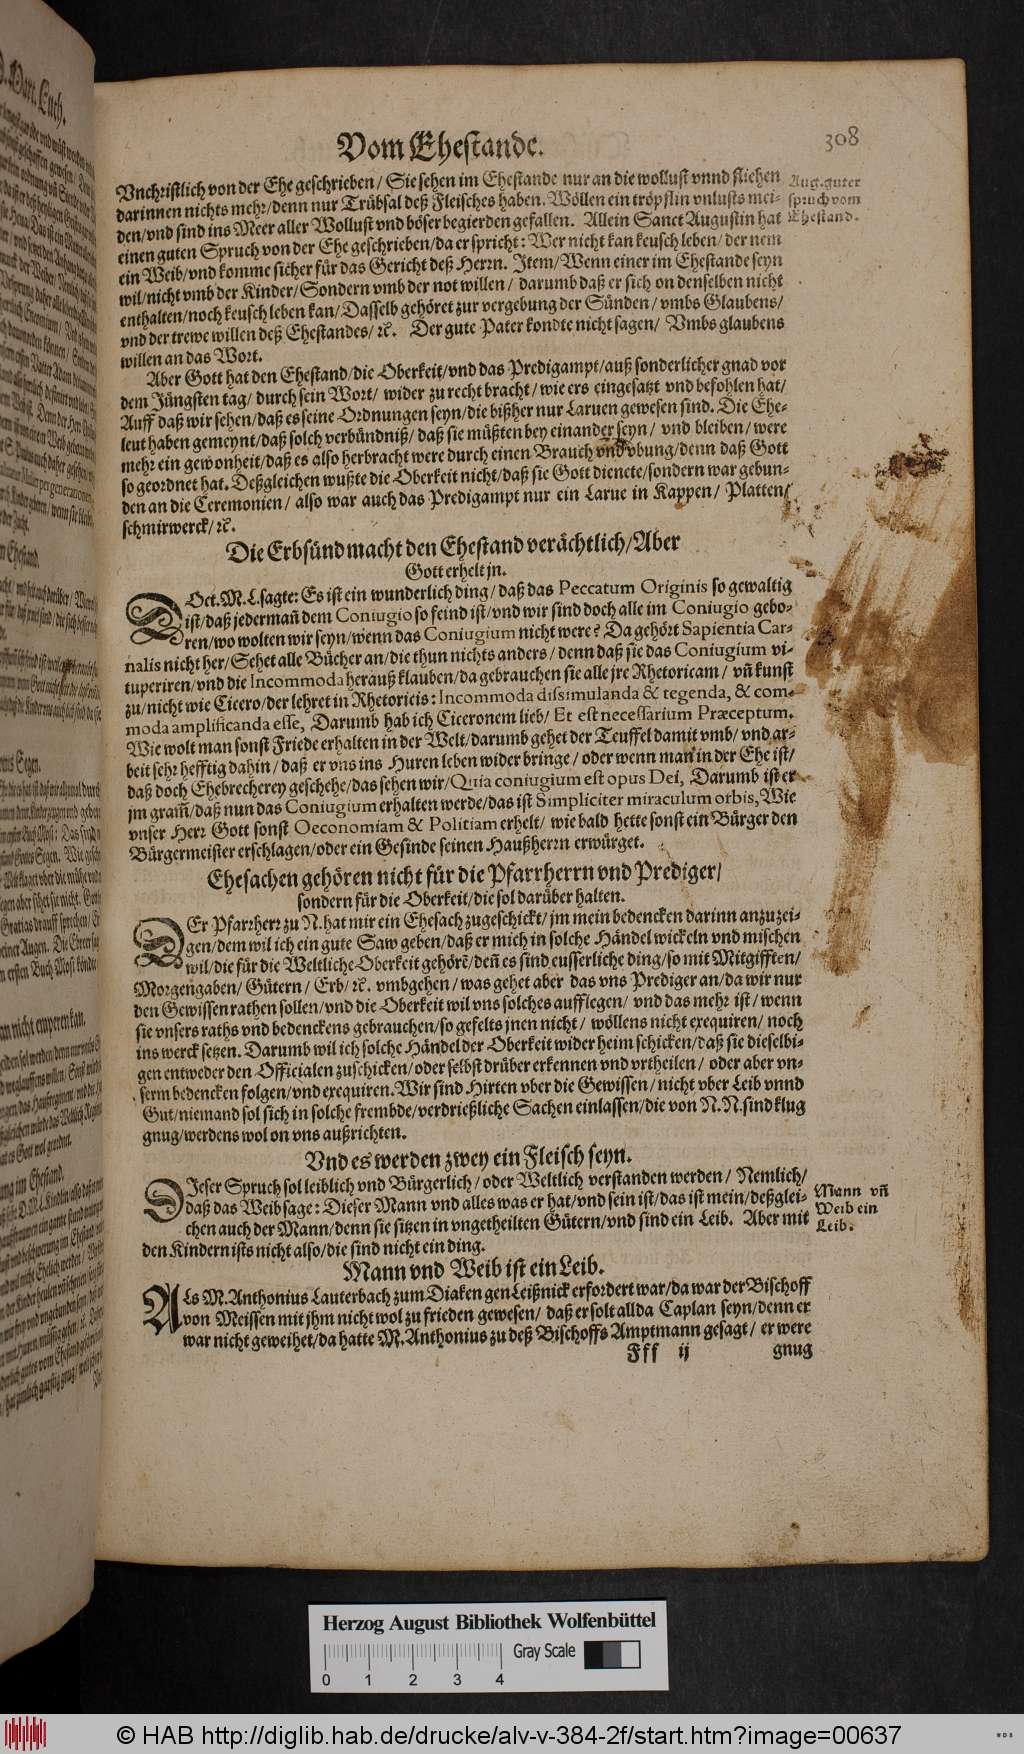 308
Vom Ehestande.
Vnchristlich von der Ehe geschrieben/ Sie sehen im Ehestande nur an die wollust vnnd fliehen
darinnen nichts mehr/denn nur Trübsal deß Fleisches haben. Wöllen ein tröpflin vnlusts mei-
den/vnd sind ins Meer aller Wollust vnd böser begierden gefallen. Allein Sanct Augustin hat
einen guten Spruch von der Ehe geschrieben/da er spricht: Wer nicht kan keusch leben/ der nem
ein Weib/vnd komme sicher für das Gericht deß Herrn. Item/Wenn einer im Ehestande seyn
wil/nicht vmb der Kinder/Sondern vmb der not willen/ darumb daß er sich on denselben nicht
enthalten/noch keusch leben kan/Dasselb gehöret zur vergebung der Sünden/ vmbs Glaubens/
vnd der trewe willen deß Ehestandes/ ꝛc. Der gute Pater kondte nicht sagen/ Vmbs glaubens
willen an das Wort.
Aug. guter
spruch vom
Ehestand.
Aber Gott hat den Ehestand/die Oberkeit/vnd das Predigampt/auß sonderlicher gnad vor
dem Jüngsten tag/ durch sein Wort/ wider zu recht bracht/ wie ers eingesatzt vnd befohlen hat/
Auff daß wir sehen/daß es seine Ordnungen seyn/die bißher nur Laruen gewesen sind. Die Ehe-
leut haben gemeynt/daß solch verbündniß/ daß sie müßten bey einander seyn/ vnd bleiben/ were
mehr ein gewonheit/daß es also herbracht were durch einen Brauch vnd vbung/denn daß Gott
so geordnet hat. Deßgleichen wußte die Oberkeit nicht/daß sie Gott dienete/sondern war gebun-
den an die Ceremonien/ also war auch das Predigampt nur ein Larue in Kappen/ Platten/
schmirwerck/ ꝛc.
Die Erbsünd macht den Ehestand verächtlich/Aber
Gott erhelt jn.
DOct. M. L. sagte: Es ist ein wunderlich ding/ daß das Peccatum Originis so gewaltig
ist/daß jederman̄ dem Coniugio so feind ist/vnd wir sind doch alle im Coniugio gebo-
ren/wo wolten wir seyn/wenn das Coniugium nicht were? Da gehört Sapientia Car-
nalis nicht her/Sehet alle Bücher an/die thun nichts anders/ denn daß sie das Coniugium vi-
tuperiren/vnd die Incommoda herauß klauben/da gebrauchen sie alle jre Rhetoricam/ vn̄ kunst
zu/nicht wie Cicero/der lehret in Rhetoricis: Incommoda dissimulanda & tegenda, & com-
moda amplificanda esse, Darumb hab ich Ciceronem lieb/ Et est necessarium Præceptum.
Wie wolt man sonst Friede erhalten in der Welt/darumb gehet der Teuffel damit vmb/ vnd ar-
beit sehr hefftig dahin/ daß er vns ins Huren leben wider bringe/ oder wenn man in der Ehe ist/
daß doch Ehebrecherey geschehe/das sehen wir/Quia coniugium est opus Dei, Darumb ist er
jm gram̄/daß nun das Coniugium erhalten werde/das ist Simpliciter miraculum orbis, Wie
vnser Herr Gott sonst Oeconomiam & Politiam erhelt/ wie bald hette sonst ein Bürger den
Bürgermeister erschlagen/oder ein Gesinde seinen Haußherrn erwürget.
Ehesachen gehören nicht für die Pfarrherrn vnd Prediger/
sondern für die Oberkeit/die sol darüber halten.
DEr Pfarrherr zu N. hat mir ein Ehesach zugeschickt/ jm mein bedencken darinn anzuzei-
gen/dem wil ich ein gute Saw geben/daß er mich in solche Händel wickeln vnd mischen
wil/die für die Weltliche Oberkeit gehörē/den̄ es sind eusserliche ding/so mit Mitgifften/
Morgengaben/ Gütern/ Erb/ ꝛc. vmbgehen/ was gehet aber das vns Prediger an/da wir nur
den Gewissen rathen sollen/vnd die Oberkeit wil vns solches aufflegen/ vnd das mehr ist/ wenn
sie vnsers raths vnd bedenckens gebrauchen/so gefelts jnen nicht/ wöllens nicht exequiren/ noch
ins werck setzen. Darumb wil ich solche Händel der Oberkeit wider heim schicken/daß sie dieselbi-
gen entweder den Officialen zuschicken/oder selbst drüber erkennen vnd vrtheilen/ oder aber vn-
serm bedencken folgen/vnd exequiren. Wir sind Hirten vber die Gewissen/ nicht vber Leib vnnd
Gut/niemand sol sich in solche frembde/verdrießliche Sachen einlassen/die von N. N. sind klug
gnug/werdens wol on vns außrichten.
Vnd es werden zwey ein Fleisch seyn.
DIeser Spruch sol leiblich vnd Bürgerlich/ oder Weltlich verstanden werden/ Nemlich/
daß das Weib sage: Dieser Mann vnd alles was er hat/vnd sein ist/das ist mein/deßglei-
chen auch der Mann/denn sie sitzen in vngetheilten Gütern/vnd sind ein Leib. Aber mit
den Kindern ists nicht also/die sind nicht ein ding.
Mann vn̄
Weib ein
Leib.
Mann vnd Weib ist ein Leib.
ALs M. Anthonius Lauterbach zum Diaken gen Leißnick erfordert war/da war der Bischoff
von Meissen mit jhm nicht wol zu frieden gewesen/ daß er solt allda Caplan seyn/denn er
war nicht geweihet/da hatte M. Anthonius zu deß Bischoffs Amptmann gesagt/ er were
Fff ij gnug
Herzog August Bibliothek Wolfenbüttel
Gray Scale
0 1 2 3 4
© HAB http://diglib.hab.de/drucke/alv-v-384-2f/start.htm?image=00637